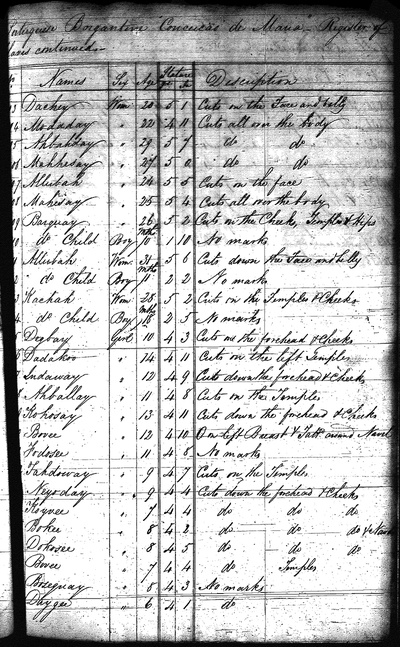 Portuguese Brigantine Conceicas de Maria Register of
Slaves continued
No. Names Sex Age Stature ft in Description
Dackey Wom 20 5 1 Cuts on the Face and belly
Modaday " 22 4 11 Cuts all over the body
Ahbahday " 29 5 7 do do
Mahhesay " 27 5 0 do do
Allubah " 24 5 5 Cuts on the face
Mahesay " 25 5 4 Cuts all over the body
Barquay " 26 5 2 Cuts on the Cheek, Temples & Hips
do Child Boy 10 mths 1 10 No marks
Allubah Wom 31 5 6 Cuts down the Face and belly
do Child Boy 11 mths 2 2 No marks
Kachah Wom 28 5 2 Cuts on the Temples & Cheeks
do Child Boy 18 mths 2 5 No marks
Deebay Girl 10 4 3 Cuts on the forehead & Cheeks
Dadakoo " 14 4 11 Cuts on the left Temples
Indaway " 12 4 9 Cuts down the forehead & Cheeks
Ahballay " 11 4 8 Cuts on the Temples
Kohosay " 13 4 11 Cuts down the forehead & Cheeks
Bovee " 12 4 10 On left Breast & Tatt around Navel
Fodosee " 11 4 8 No marks
Fahdoway " 9 4 7 Cuts on the Temples
Neyxday " 9 4 4 Cuts down the forehead & Cheeks
Hoyvee " 7 4 4 do do do
Bokee " 8 4 2 do do do & Navel
Dohosee " 8 4 5 do do do
Bovee " 7 4 4 do Temples
Bosequay " 8 4 3 No marks
Daygee " 6 4 1 do